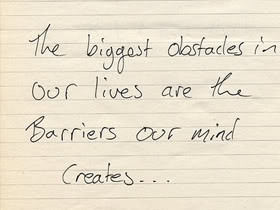 The biggest obstacles in
our lives are the
Barriers our mind
Creates...